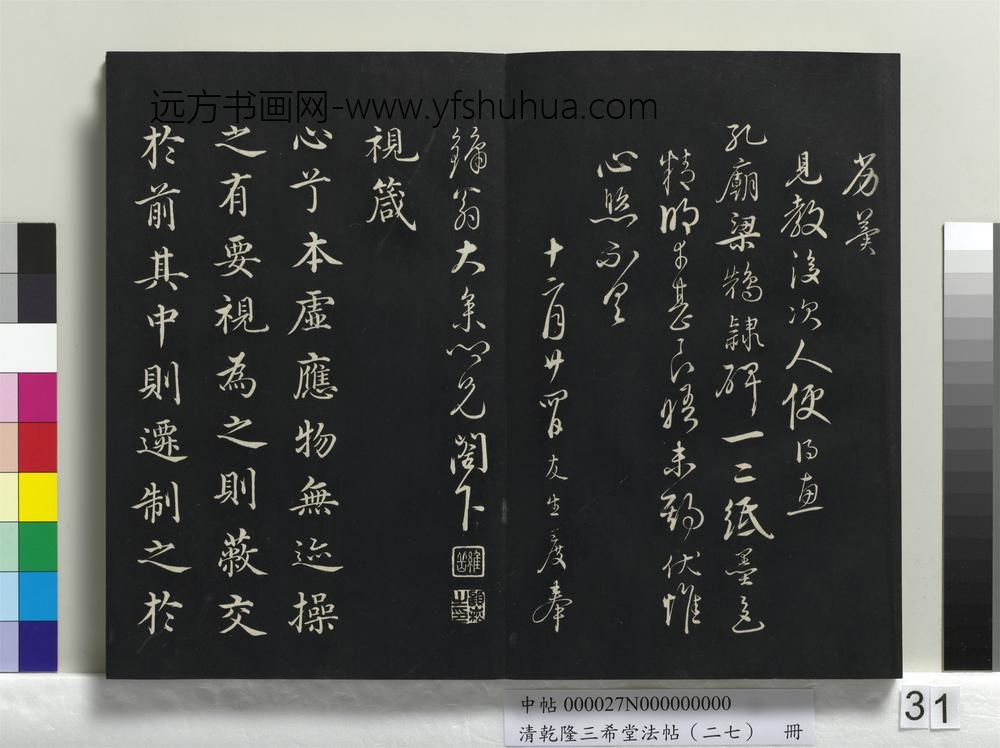 远方书画网-www.yfshuhua.com
見教後次人便得惠
孔廟梁鵠隸碑一二紙墨色
精明才甚良晤未期伏惟
心照不具
十二月廿四日友生度奉
鏞翁大參心兄閣下
視箴
心兮本虛應物無迹操
之有要視為之則蔽交
於前其中則遷制之於
中帖 000027N000000000
清乾隆三希堂法帖(二七) 冊
31